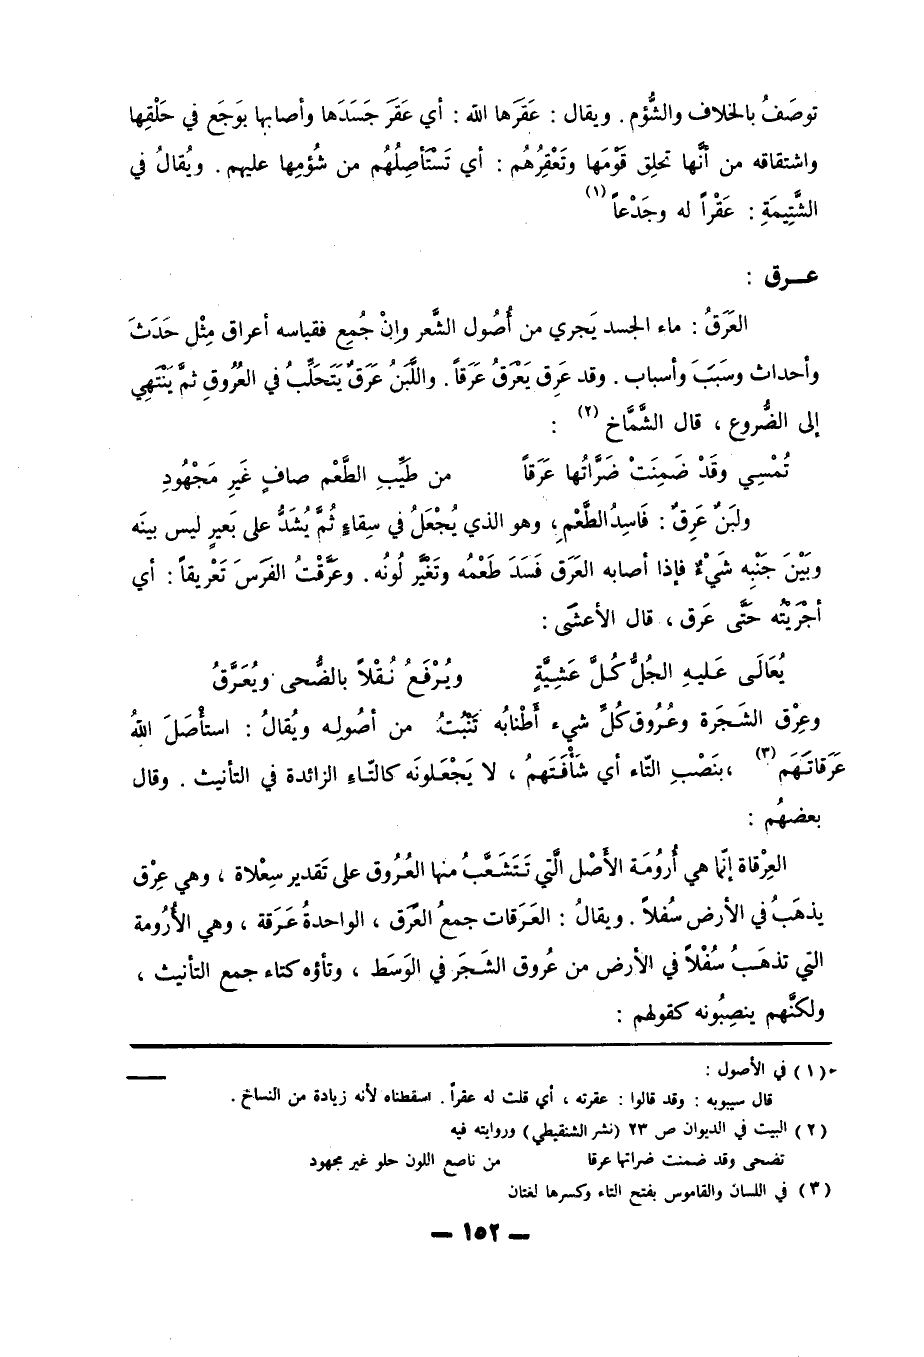 توصَفُ بالخلاف والشُّؤم . ويقال : عَقَرَها الله : أي عَقَرَ جَسَدَها وأصابها بوَجَع في حَلْقِها
واشتقاقه من أنَّها تحلِق قَوْمَها وتَعْقِرُهُم : أي تَسْتَأصِلُهُم من شُؤمِها عليهم . ويُقالُ في
الشَّتِيمَةِ : عَقْراً له وجَدْعاً (١)
عـرق :
العَرَقُ : ماء الجسد يَجري من أُصُول الشَّعر وإنْ جُمِع فقياسه أعراق مِثْل حَدَثَ
وأحداث وسَبَبَ وأسباب . وقد عَرِق يَعْرَقُ عَرَقاً . واللَّبَنُ عَرَقٌ يَتَحَلِّبُ في العُرُوقِ ثمَّ يَنْتَهِي
إلى الضُّروع ، قال الشَّمَّاخ (٢) :
تُمْسِي وقَدْ ضَمِنَتْ ضَرَّاتُها عَرَقاً من طَيِّبِ الطَّعْم صافٍ غَيرِ مَجْهُودِ
ولَبَنٌ عَرِقٌ : فَاسِدُ الطَّعْمِ، وهو الذي يُجْعَلُ في سِقاءٍ ثُمَّ يُشَدُّ على بَعيرٍ ليس بينَه
وبَيْنَ جَنْبِه شَيْءٌ فإذا أصابه العَرَق فَسَدَ طَعْمُه وتَغَيَّر لُونُه. وعَرَّقْتُ الفَرَسَ تَعْريقاً : أي
أجْرَيْتُه حَتَّى عَرِق ، قال الأعشَى :
يُعَالَى عَليهِ الجُلُّ كُلَّ عَشِيَّةٍ ويُرْفَعُ نُقْلاً بالضُّحى ويُعَرَّقُ
وعِرْق الشَجَرة وعُرُوق كُلِّ شيء أَطْنابُه تَنْبُتُ من أصُولِه ويُقالُ : استأْصَلَ اللهُ
عَرَقاتَهَم (٣) ،بنَصْبِ التّاء أي شَأْفَتَهمُ ، لا يَجْعَلونَه كالتّاءِ الزائدة في التأنيث . وقال
بعضهُم :
العِرْقاة إنّما هي أُرُومَة الأَصْل الَّتي تَتَشَعَّبُ منها العُرُوق على تَقدير سِعْلاة ، وهي عِرْق
يذهَبُ في الأرض سُفلاً . ويقالُ : العَرَقات جمعُ العَرَق ، الواحدةُ عَرَقة ، وهي الأُرُومة
التي تذهَبُ سُفْلاً في الأرض من عُروق الشجَر في الوَسَط ، وتأؤه كتاء جمع التأنيث ،
ولكنَّهم ينصِبُونه كقولهم :
(١) في الأصول :
قال سيبويه : وقد قالوا : عقرته ، أي قلت له عقراً . اسقطناه لأنه زيادة من النساخ .
(٢) البيت في الديوان ص ٢٣ (نشر الشنقيطي) وروايته فيه
تضحى وقد ضمنت ضراتها عرقا من ناصع اللون حلو غير مجهود
(٣) في اللسان والقاموس بفتح التاء وكسرها لغتان
— ١٥٢ —